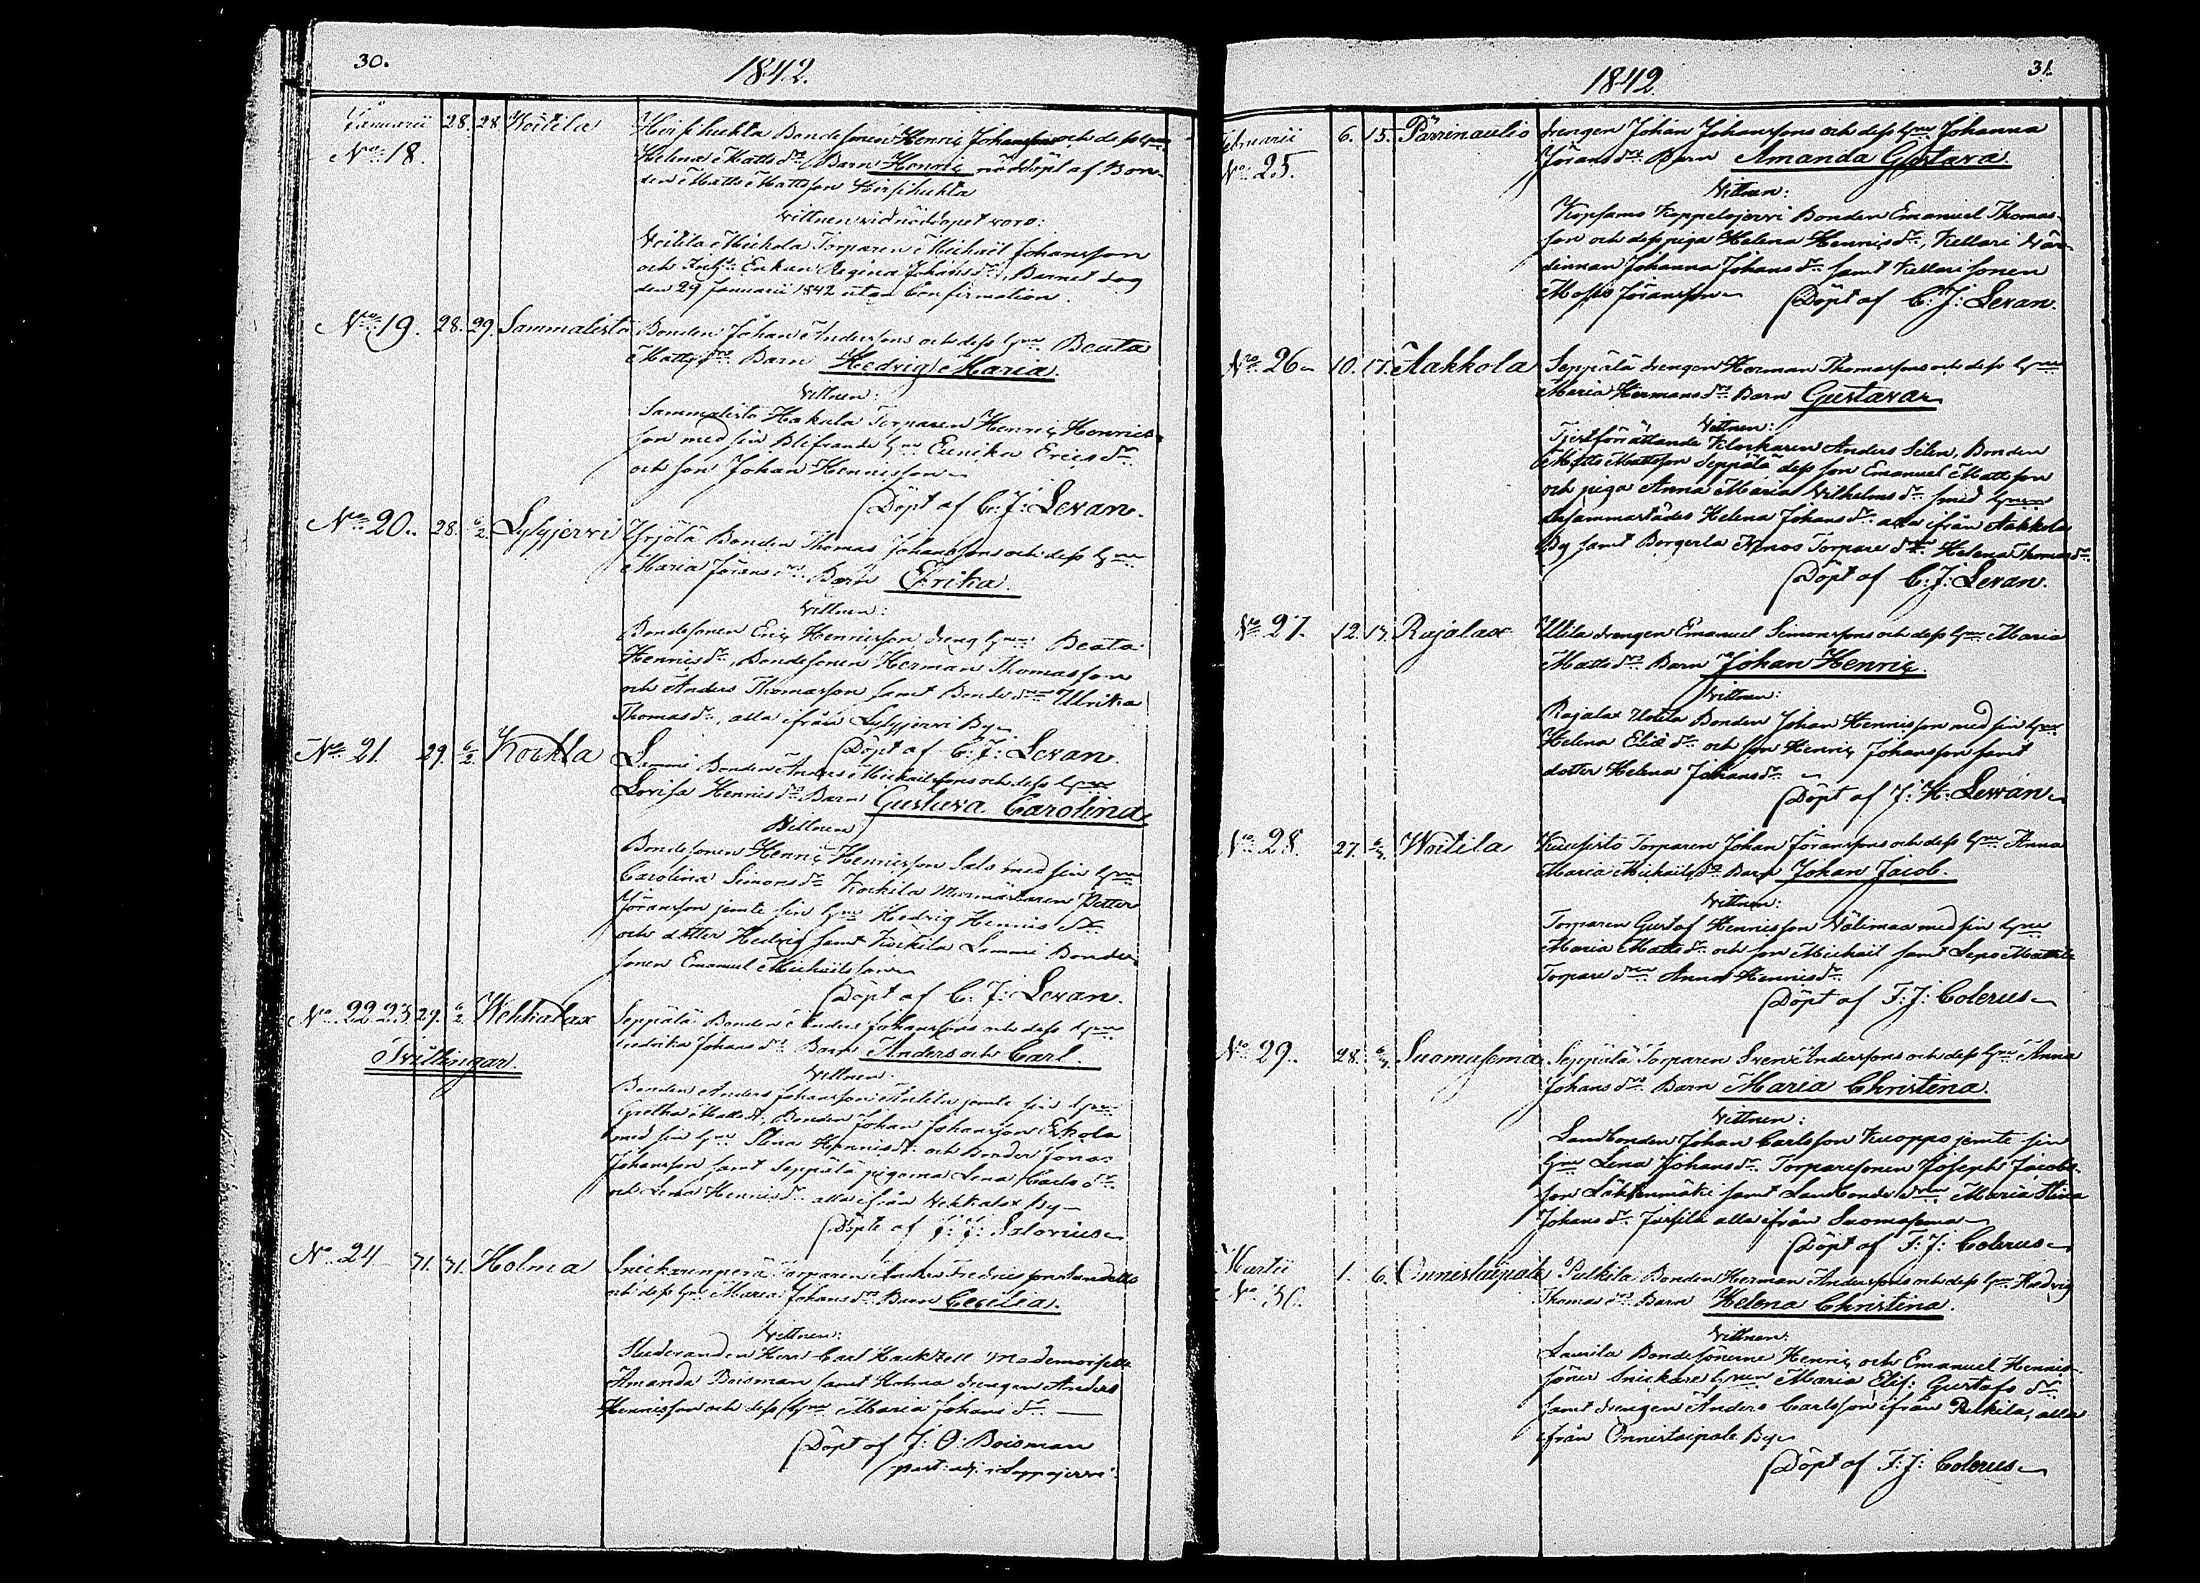 30.
1842.
Januarii 28. 28. Woitila Hirsihuhta Bondesonen Henric Johanssons och dess hu
No 18. Helena Matts dr Barn Henric nöddöpt af Bon-
den Matts Mattsson Hirsihuhta
Vittnen vid nöddopet voro:
Woitila Torparen Michaël Johansson
och Enkan Regina Johans dr, Barnet dog
den 29 Januarii 1842 utan Confirmation.
No 19. 28. 29. Sammalisto Bonden Johan Anderssons och dess hu Beata
Matts dr Barn Hedvig Maria.
Vittnen:
Sammalisto Hakula Torparen Henric Henrics-
son med sin hu Eunika Erics dr
och son Johan Henricsson
Döpt af C: J: Levan.
No 20. 28. 6/2. Lylyjervi Yrjölä Bonden Thomas Johanssons och dess hu
Maria Jörans dr Barn Erika.
Vittnen:
Bondesonen Eric Henricsson dreng hu Beata
Henrics dr, Bondesonen Herman Thomasson
och Anders Thomasson samt Bonde dr Ulrika
Thomas dr, alla ifrån Lylyjervi By
Döpt af C: J: Levan.
No 21. 29. 6/2. Kockla Lammi Bonden Anders Michaëlssons och dess hu
Lovisa Henrics dr Barn Gustava Carolina
Vittnen:
Bondesonen Henric Henricsson Sals med sin hu
Carolina Simons dr Kockila Petter
Jöransson jemte sin hu Hedvig Henrics dr
och dotter Hedvig samt Kockila Lammi Bonde-
sonen Emanuel Michaëlsson
Döpt af C: J: Levan.
No 22 23. 29. 6/2. Wehkalax Seppälä Bonden Anders Johanssons och dess hu
Fredrika Johans dr Barn Anders och Carl.
Tvillingar.
Vittnen:
Bonden Anders Johansson jemte sin hu
Gretha Matts dr, Bonden Johan Johansson Eskola
med sin hu Stina Henrics dr och Bonden Jonas
Johansson samt Seppälä pigorna Lena Carls dr
och Lena Henrics dr alla ifrån Wehkalax By
Döpte af J: J: Salovius
No 24 31. 31. Holma Snickarinperä Torparen Anders Fredricsson
och dess hu Maria Johans dr Barn Cecilia.
Vittnen:
Studeranden Herr Carl Hackzell Mademoiselle
Amanda Boisman samt Holma drengen Anders
Henricsson och dess hu Maria Johans dr
Döpt af J: O: Boisman
past: adj: i Leppäjervi
1842
31.
Februarii 6. 15. Pärrinaulio drengen Johan Johanssons och dess hu Johanna
No 25. Jörans dr Barn Amanda Gustava.
Vittnen:
Kopsamo Koppelojervi Bonden Emanuel Thomas-
son och dess piga Helena Henrics dr, Kellari Vär-
dinnan Johanna Johans dr samt Kellari sonen
Mosis Jöransson Döpt af C: J: Levan.
No 26 10. 17. Aakkola Seppälä drengen Herman Thomassons och dess hu
Maria Hermans dr Barn Gustava
Vittnen:
Tjenstförrättande Klockaren Anders Silen, Bonden
Matts Mattsson Seppälä dess son Emanuel Mattsson
och piga Anna Maria Vilhelms dr smed hu
dersammastädes Helena Johans dr alla ifrån Aakkola
By samt Borgerla Torpare dr Helena Thomas dr
Döpt af C: J: Levan.
No 27. 12. 17. Rajalax Utila drengen Emanuel Simonssons och dess hu Maria
Matts dr Barn Johan Henric.
Vittnen:
Rajalax Utila Bonden Johan Henricsson med sin hu
Helena Eliæ dr och son Henric Johansson samt
dotter Helena Johans dr
Döpt af J: H: Lewan
No 28. 27. Woitila Kuusisto Torparen Johan Jöranssons och dess hu Anna
Maria Michaëls dr Barn Johan Jacob.
Vittnen:
Torparen Gustaf Henricsson Välimaa med sin hu
Maria Matts dr och son Michaël samt Seps Mattila
Torpare dr Anna Henrics dr
Döpt af F: J: Colerus
No 29. 28. Suomasema Seppälä Torparen Sven Anderssons och dess hu Anna
Johans dr Barn Maria Christina.
Vittnen:
Landbonden Johan Carlsson Kuoppo jemte sin
hu Lena Johans dr Torparesonen Joseph Jacobs-
son Läktenmäki samt Landbonde dr Maria Stina
Johans dr Jussila alla ifrån Suomasema
Döpt af F: J: Colerus
Martii 1. 6. Onnistaipale Pulkila Bonden Herman Anderssons och dess hu Hedvig
No 30. Thomas dr Barn Helena Christina.
Vittnen:
Laurila Bondesönerne Henric och Emanuel Henrics-
söner Snickare hu Maria Elis: Gustafs dr
samt drengen Anders Carlsson ifrån Pulkila, alla
ifrån Onnistaipale By
Döpt af F: J: Colerus